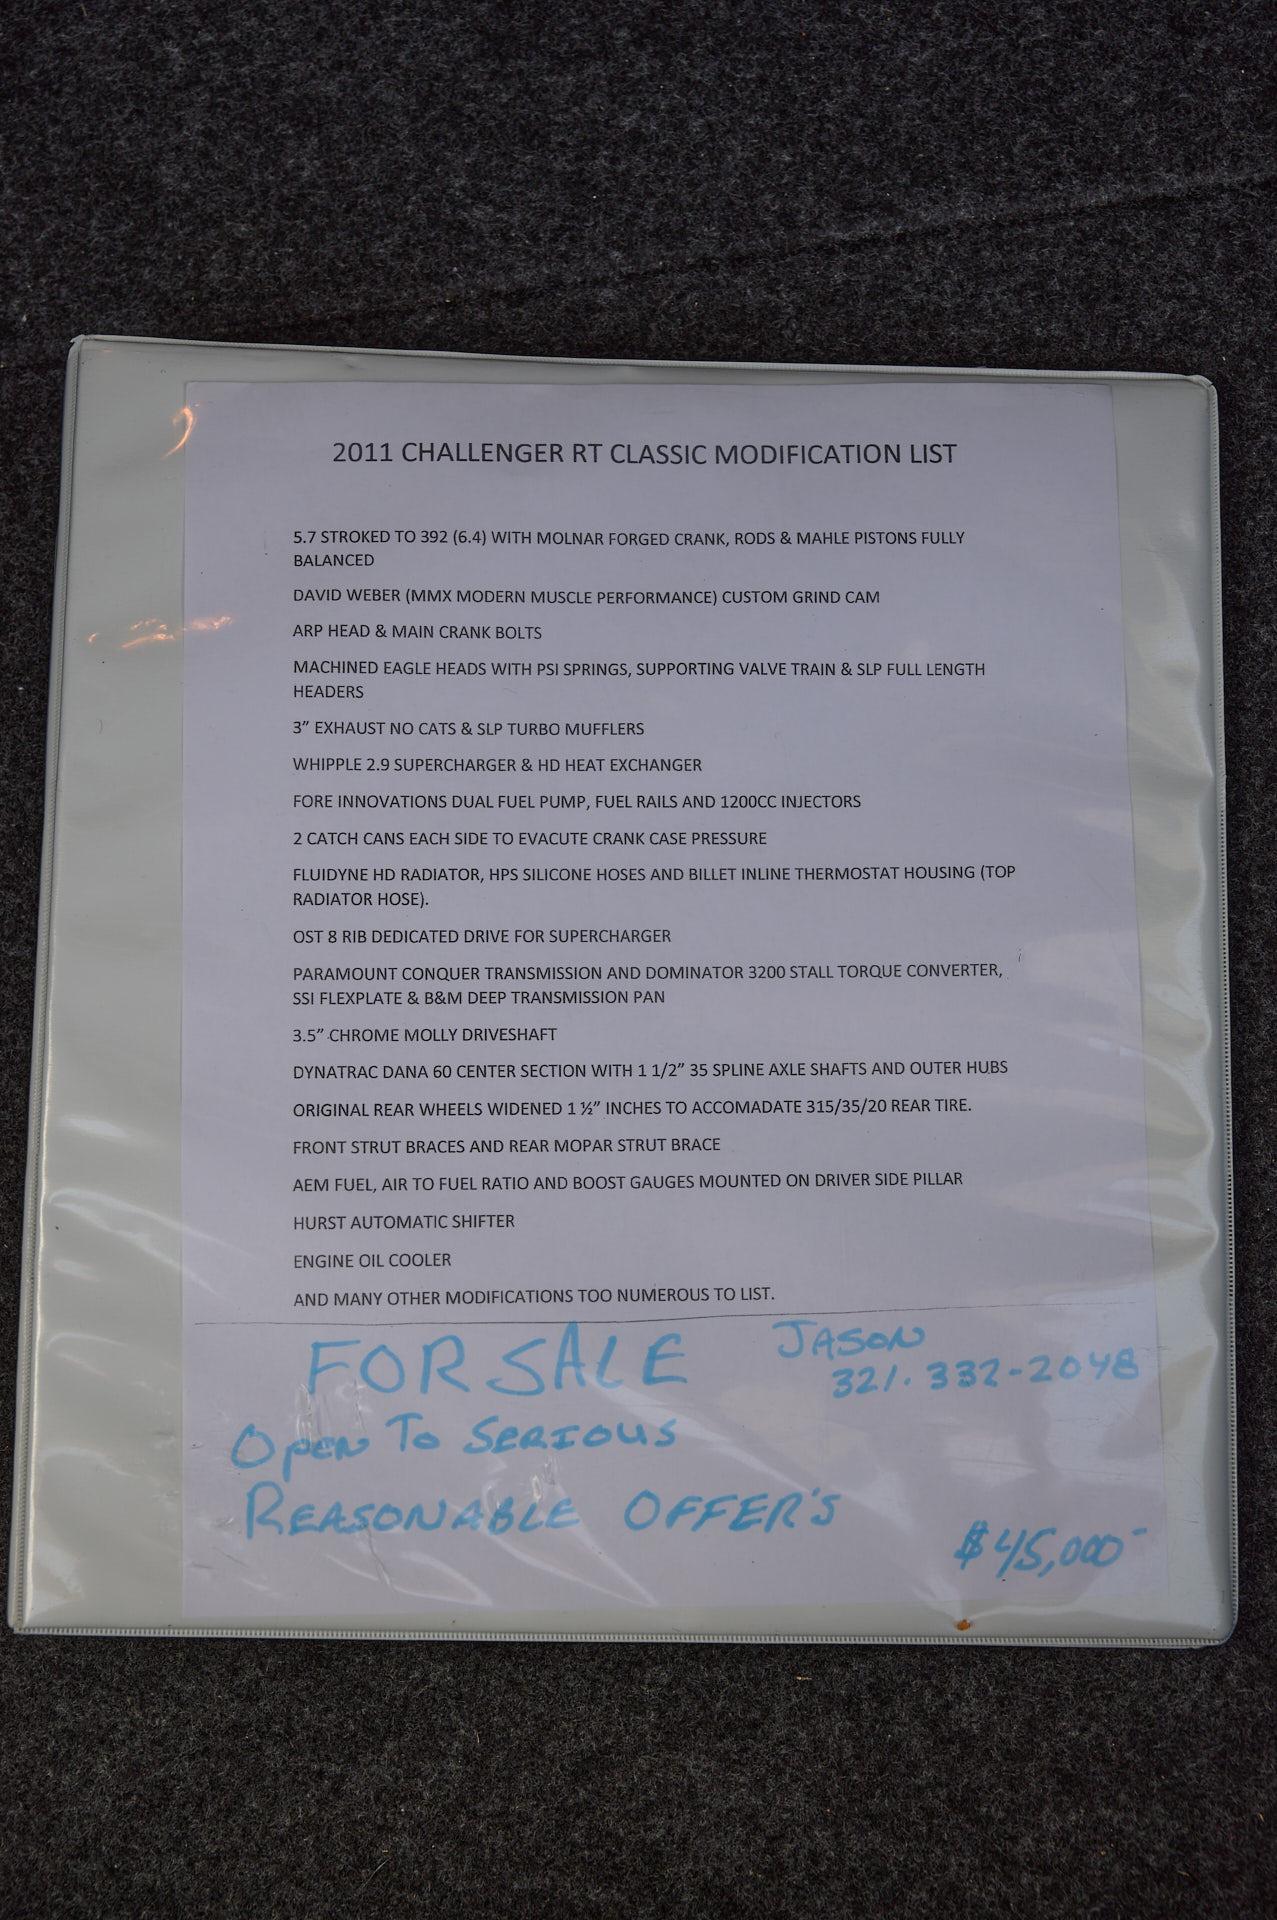 2011 CHALLENGER RT CLASSIC MODIFICATION LIST
5.7 STROKED TO 392 (6.4) WITH MOLNAR FORGED CRANK, RODS & MAHLE PISTONS FULLY
BALANCED
DAVID WEBER (MMX MODERN MUSCLE PERFORMANCE) CUSTOM GRIND CAM
ARP HEAD & MAIN CRANK BOLTS
MACHINED EAGLE HEADS WITH PSI SPRINGS, SUPPORTING VALVE TRAIN & SLP FULL LENGTH
HEADERS
3" EXHAUST NO CATS & SLP TURBO MUFFLERS
WHIPPLE 2.9 SUPERCHARGER & HD HEAT EXCHANGER
FORE INNOVATIONS DUAL FUEL PUMP, FUEL RAILS AND 1200CC INJECTORS
2 CATCH CANS EACH SIDE TO EVACUTE CRANK CASE PRESSURE
FLUIDYNE HD RADIATOR, HPS SILICONE HOSES AND BILLET INLINE THERMOSTAT HOUSING (TOP
RADIATOR HOSE).
OST 8 RIB DEDICATED DRIVE FOR SUPERCHARGER
PARAMOUNT CONQUER TRANSMISSION AND DOMINATOR 3200 STALL TORQUE CONVERTER,
SSI FLEXPLATE & B&M DEEP TRANSMISSION PAN
3.5" CHROME MOLLY DRIVESHAFT
DYNATRAC DANA 60 CENTER SECTION WITH 1 1/2" 35 SPLINE AXLE SHAFTS AND OUTER HUBS
ORIGINAL REAR WHEELS WIDENED 1 ½" INCHES TO ACCOMADATE 315/35/20 REAR TIRE.
FRONT STRUT BRACES AND REAR MOPAR STRUT BRACE
AEM FUEL, AIR TO FUEL RATIO AND BOOST GAUGES MOUNTED ON DRIVER SIDE PILLAR
HURST AUTOMATIC SHIFTER
ENGINE OIL COOLER
AND MANY OTHER MODIFICATIONS TOO NUMEROUS TO LIST.
FOR SALE JASON
321.332-2048
OPEN TO SERIOUS
REASONABLE OFFER'S
$45,000-